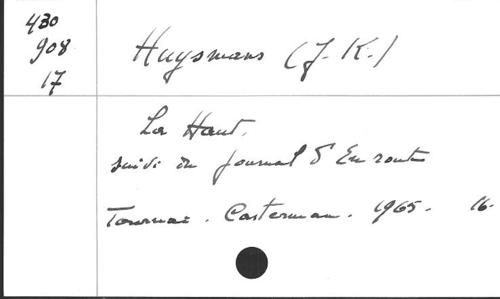 430
908
17
Huysmans (J. K.)
La Haut.
suivi du Journal d'En route
Tournai. Casterman. 1965. 16.